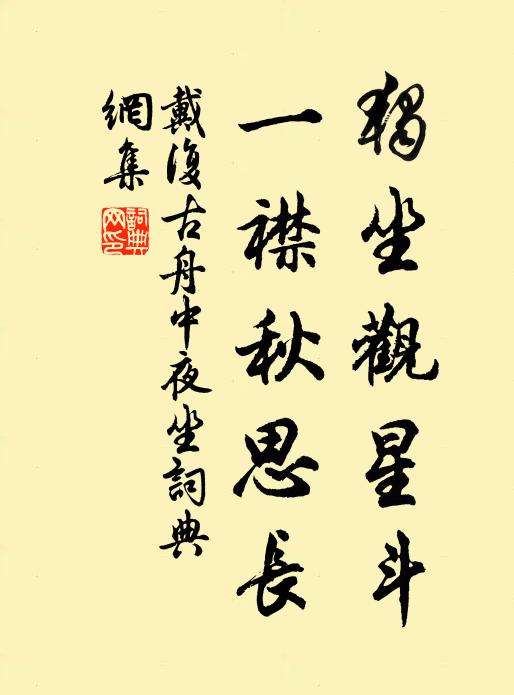 獨坐觀星斗
一襟秋思長
戴復古舟中夜坐詞典
網集
詞典
网印